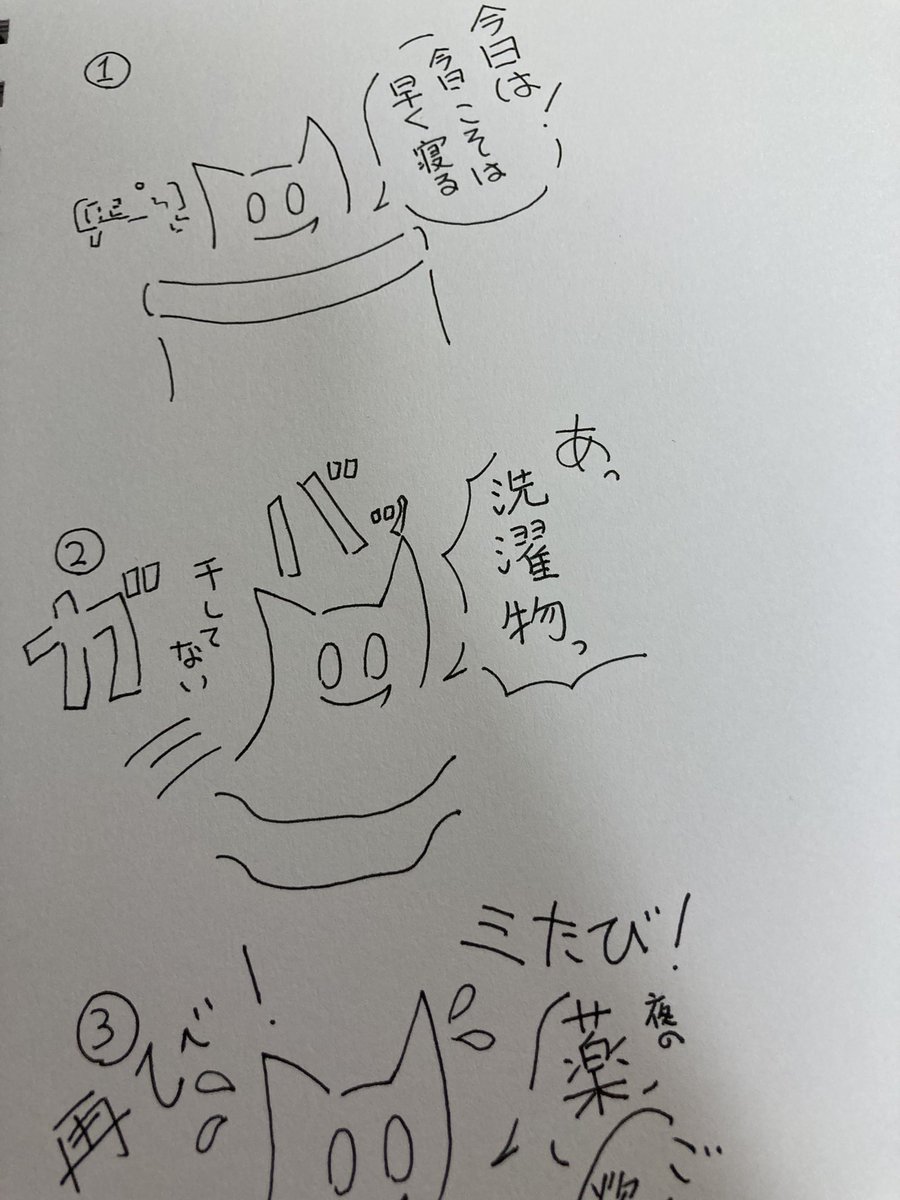 ①
今日は
今日こそは
早く寝る！
②
あっ
洗濯物っ
ガバッ
干して
ない
③
再び！
ミたび！
夜の
薬
ご